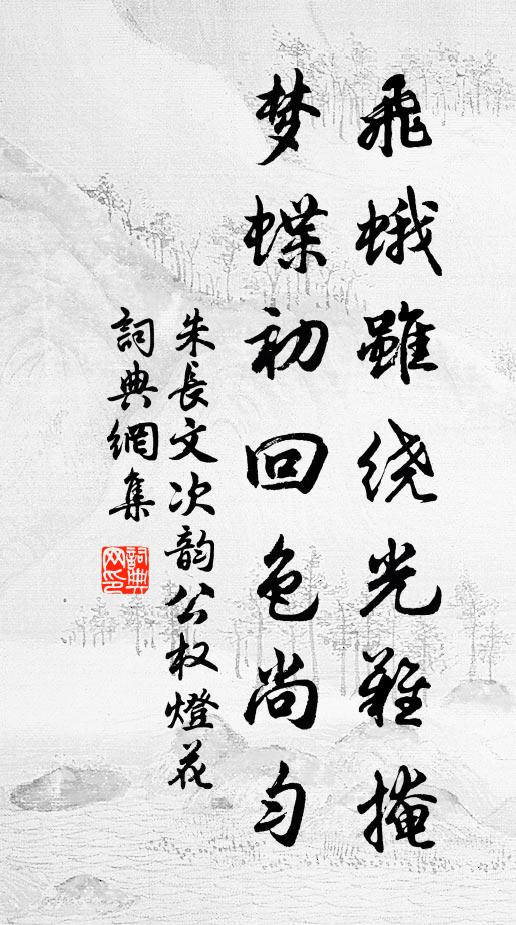 飛蛾雖绕光難掩
梦蝶初回色尚匀
朱長文次韵公权燈花
詞典網集
詞典網印